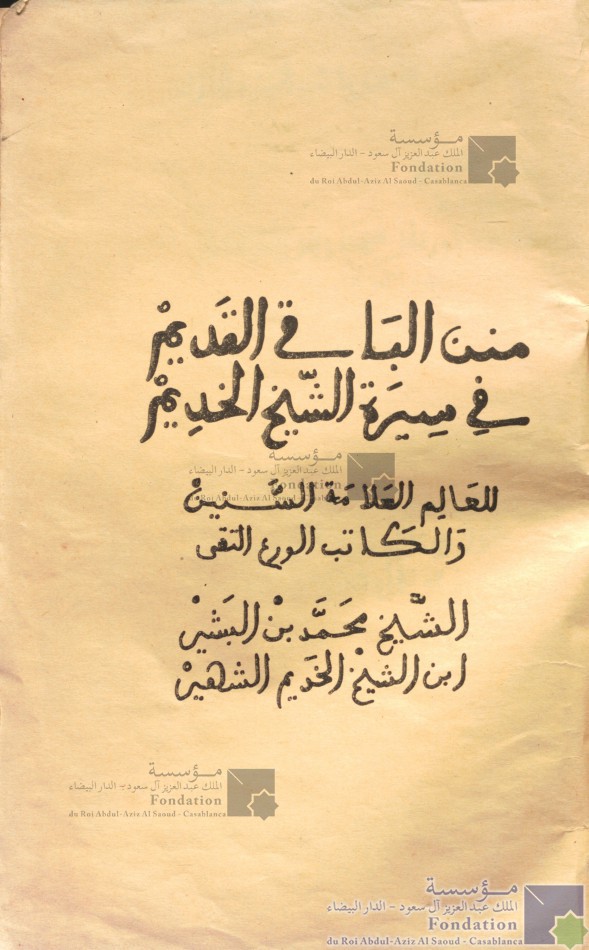 مؤسسة
الملك عبد العزيز آل سعود - الدار البيضاء
Fondation
du Roi Abdul-Aziz Al Saoud - Casablanca
منن البَاقي القَديمْ
في سِيرَة الشّيخ الخدِيمْ
مؤسسة
الملك عبد العزيز آل سعود - الدار البيضاء
Fondation
du Roi Abdul-Aziz Al Saoud - Casablanca
للعَالِم العَلاَمَة السَّنِي
وَالكَاتب الورع التقى
الشّيخ محَمَّد بنْ البَشيرْ
ابن الشيخْ الخديم الشهيرْ
مؤسسة
الملك عبد العزيز آل سعود - الدار البيضاء
Fondation
du Roi Abdul-Aziz Al Saoud - Casablanca
مؤسسة
الملك عبد العزيز آل سعود - الدار البيضاء
Fondation
du Roi Abdul-Aziz Al Saoud - Casablanca